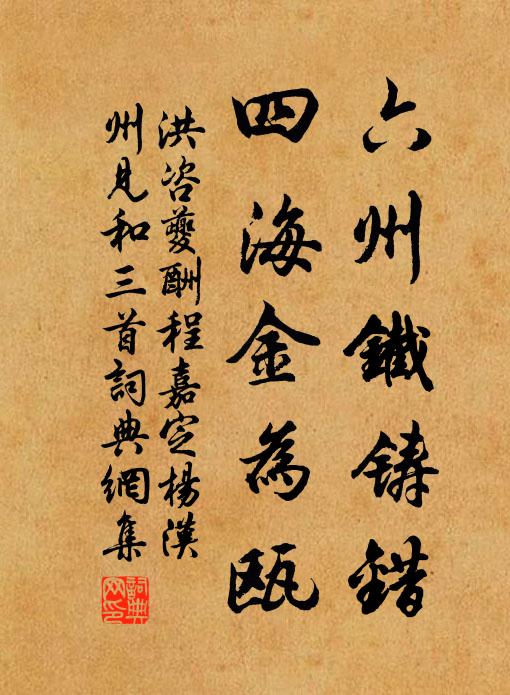 六州鐵鑄錯
四海金為甌
洪咨夔酬程嘉定楊漢
州見和三首詞典網集
詞典网印